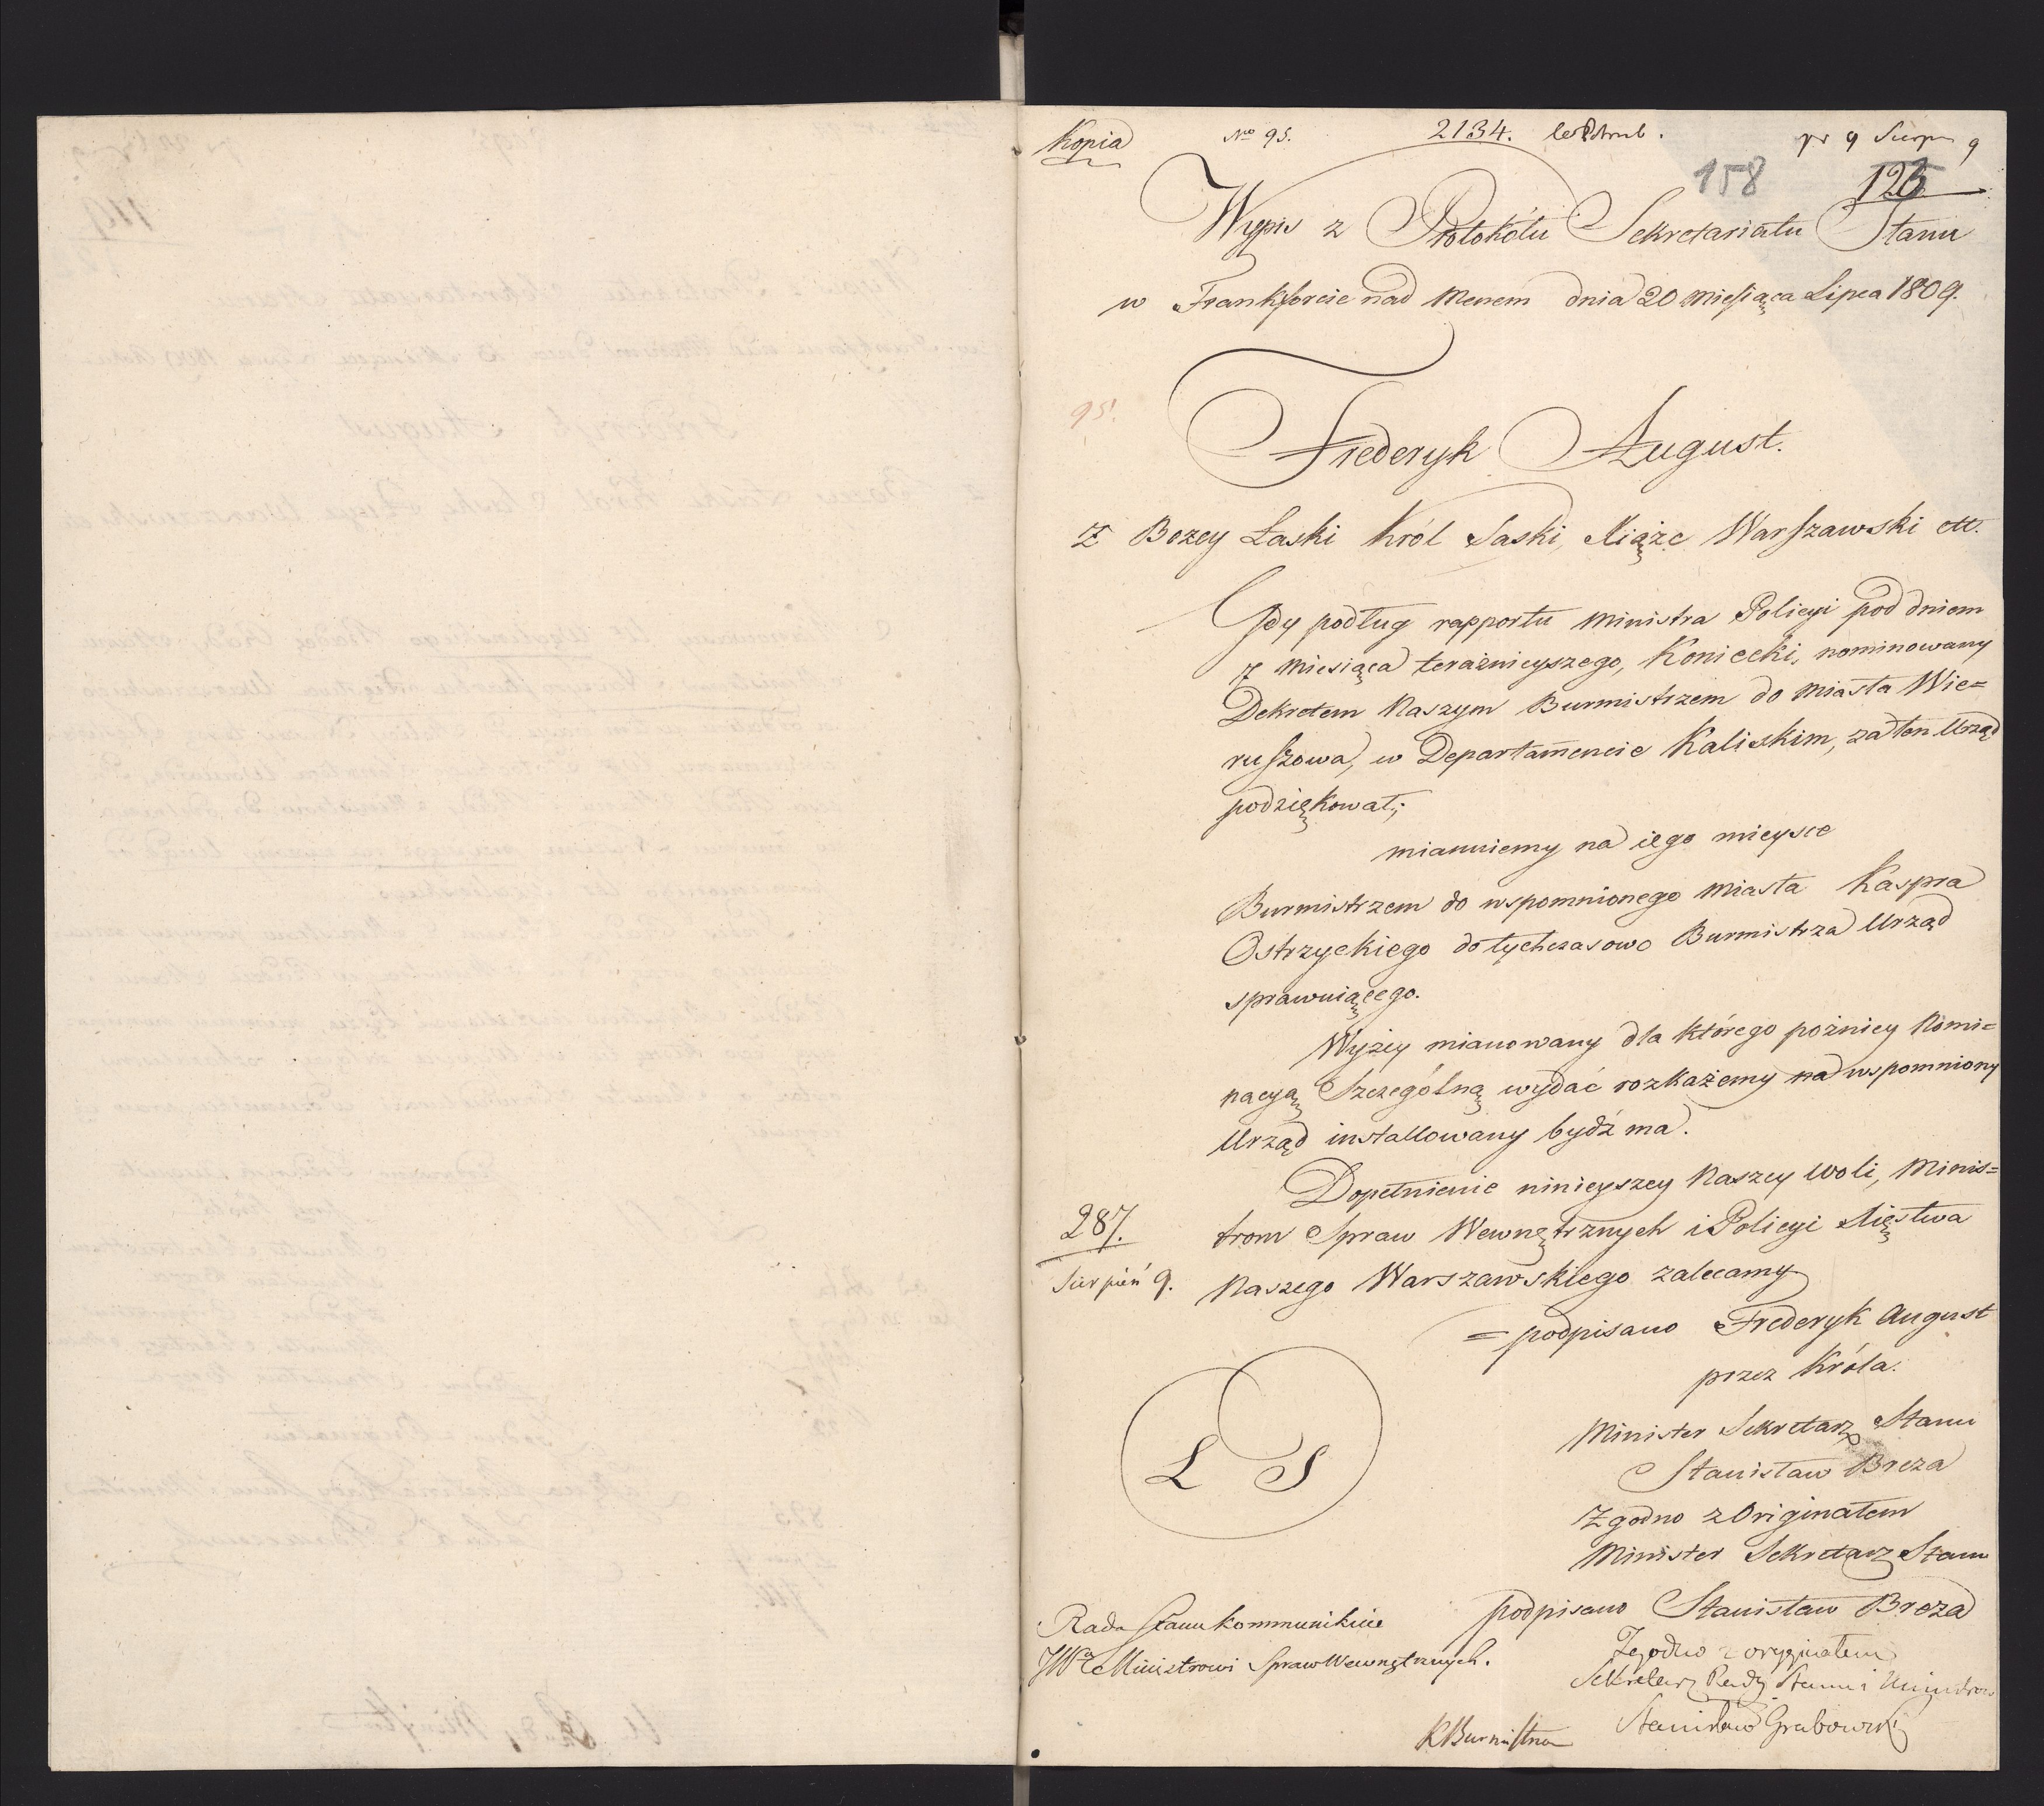 Kopia
No 95.
2134.
pr 9 Sierpn 9
158
123
Wypis z Protokółu Sekretariatu Stanu
w Frankforcie nad Menem dnia 20 Miesiąca Lipca 1809.
95.
Frederyk August.
Z Bozey Łaski Król Saski, Xiąże Warszawski ett.
Gdy podług rapportu Ministra Policyi pod dniem
7 Miesiąca teraźnieyszego, Koniecki, nominowany
Dekretem Naszym Burmistrzem do Miasta Wie=
ruszowa, w Departamencie Kaliskim, za ten Urząd
podziękował;
mianuiemy na iego mieysce
Burmistrzem do wspomnionego Miasta Kaspra
Ostrzyckiego dotychczasowo Burmistrza Urząd
sprawuiącego.
Wyżey mianowany dla którego poźniey Nomi=
nacyą Szczególną wydać rozkażemy na wspomniony
Urząd installowany bydź ma.
Dopełnienie ninieyszey Naszey Woli, Minis=
trom Spraw Wewnętrznych i Policyi Xięstwa
Naszego Warszawskiego zalecamy
287.
Sierpień 9.
= podpisano Frederyk August
przez Króla.
Minister Sekretarz Stanu
Stanisław Breza
Zgodno z Originałem
Minister Sekretarz Stanu
podpisano Stanisław Breza
L S
Rada Stanu kommunikuie
JWu Ministrowi Spraw Wewnętrznych.
Zgodno z oryginałem
Sekretarz Rady Stanu i Ministrow
Stanisław Grabowski
K Burmistrza